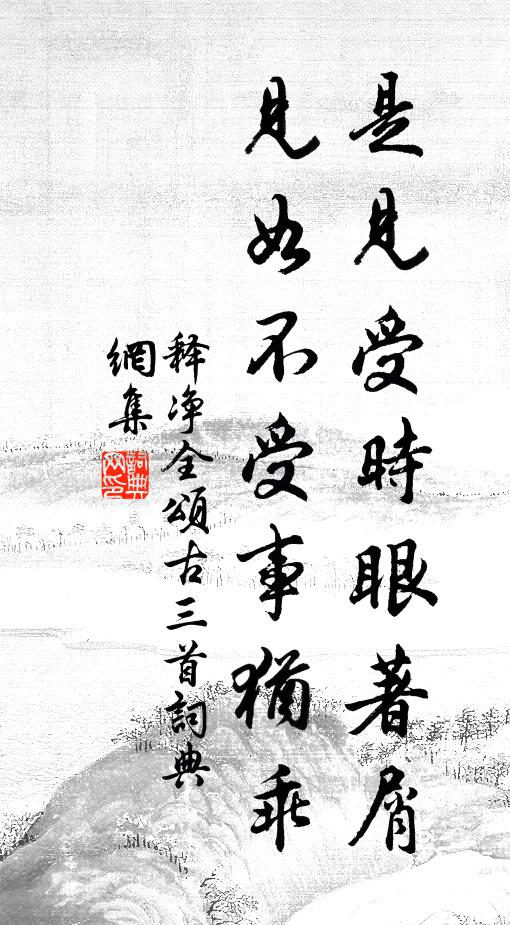 是見受時眼著屑
見如不受事猶乖
释净全頌古三首詞典
網集
詞典
网印